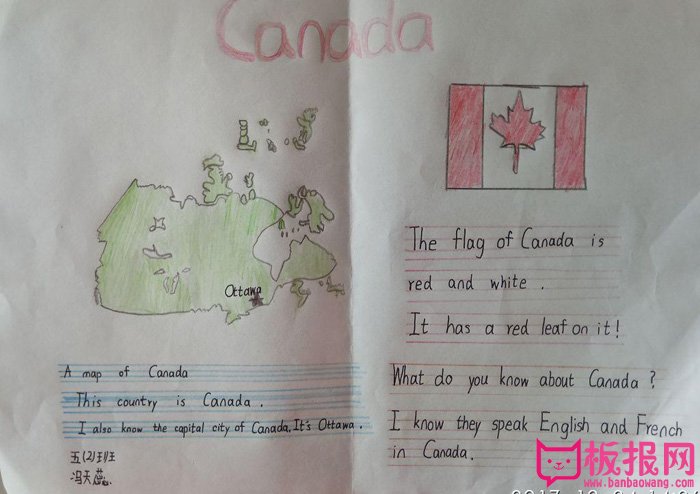 Canada
Ottawa
A map of Canada
This country is Canada.
I also know the capital city of Canada. It's Ottawa.
五(2)班
冯天蕊
The flag of Canada is
red and white.
It has a red leaf on it!
What do you know about Canada?
I know they speak English and French
in Canada.
板报网
www.banbaowang.com